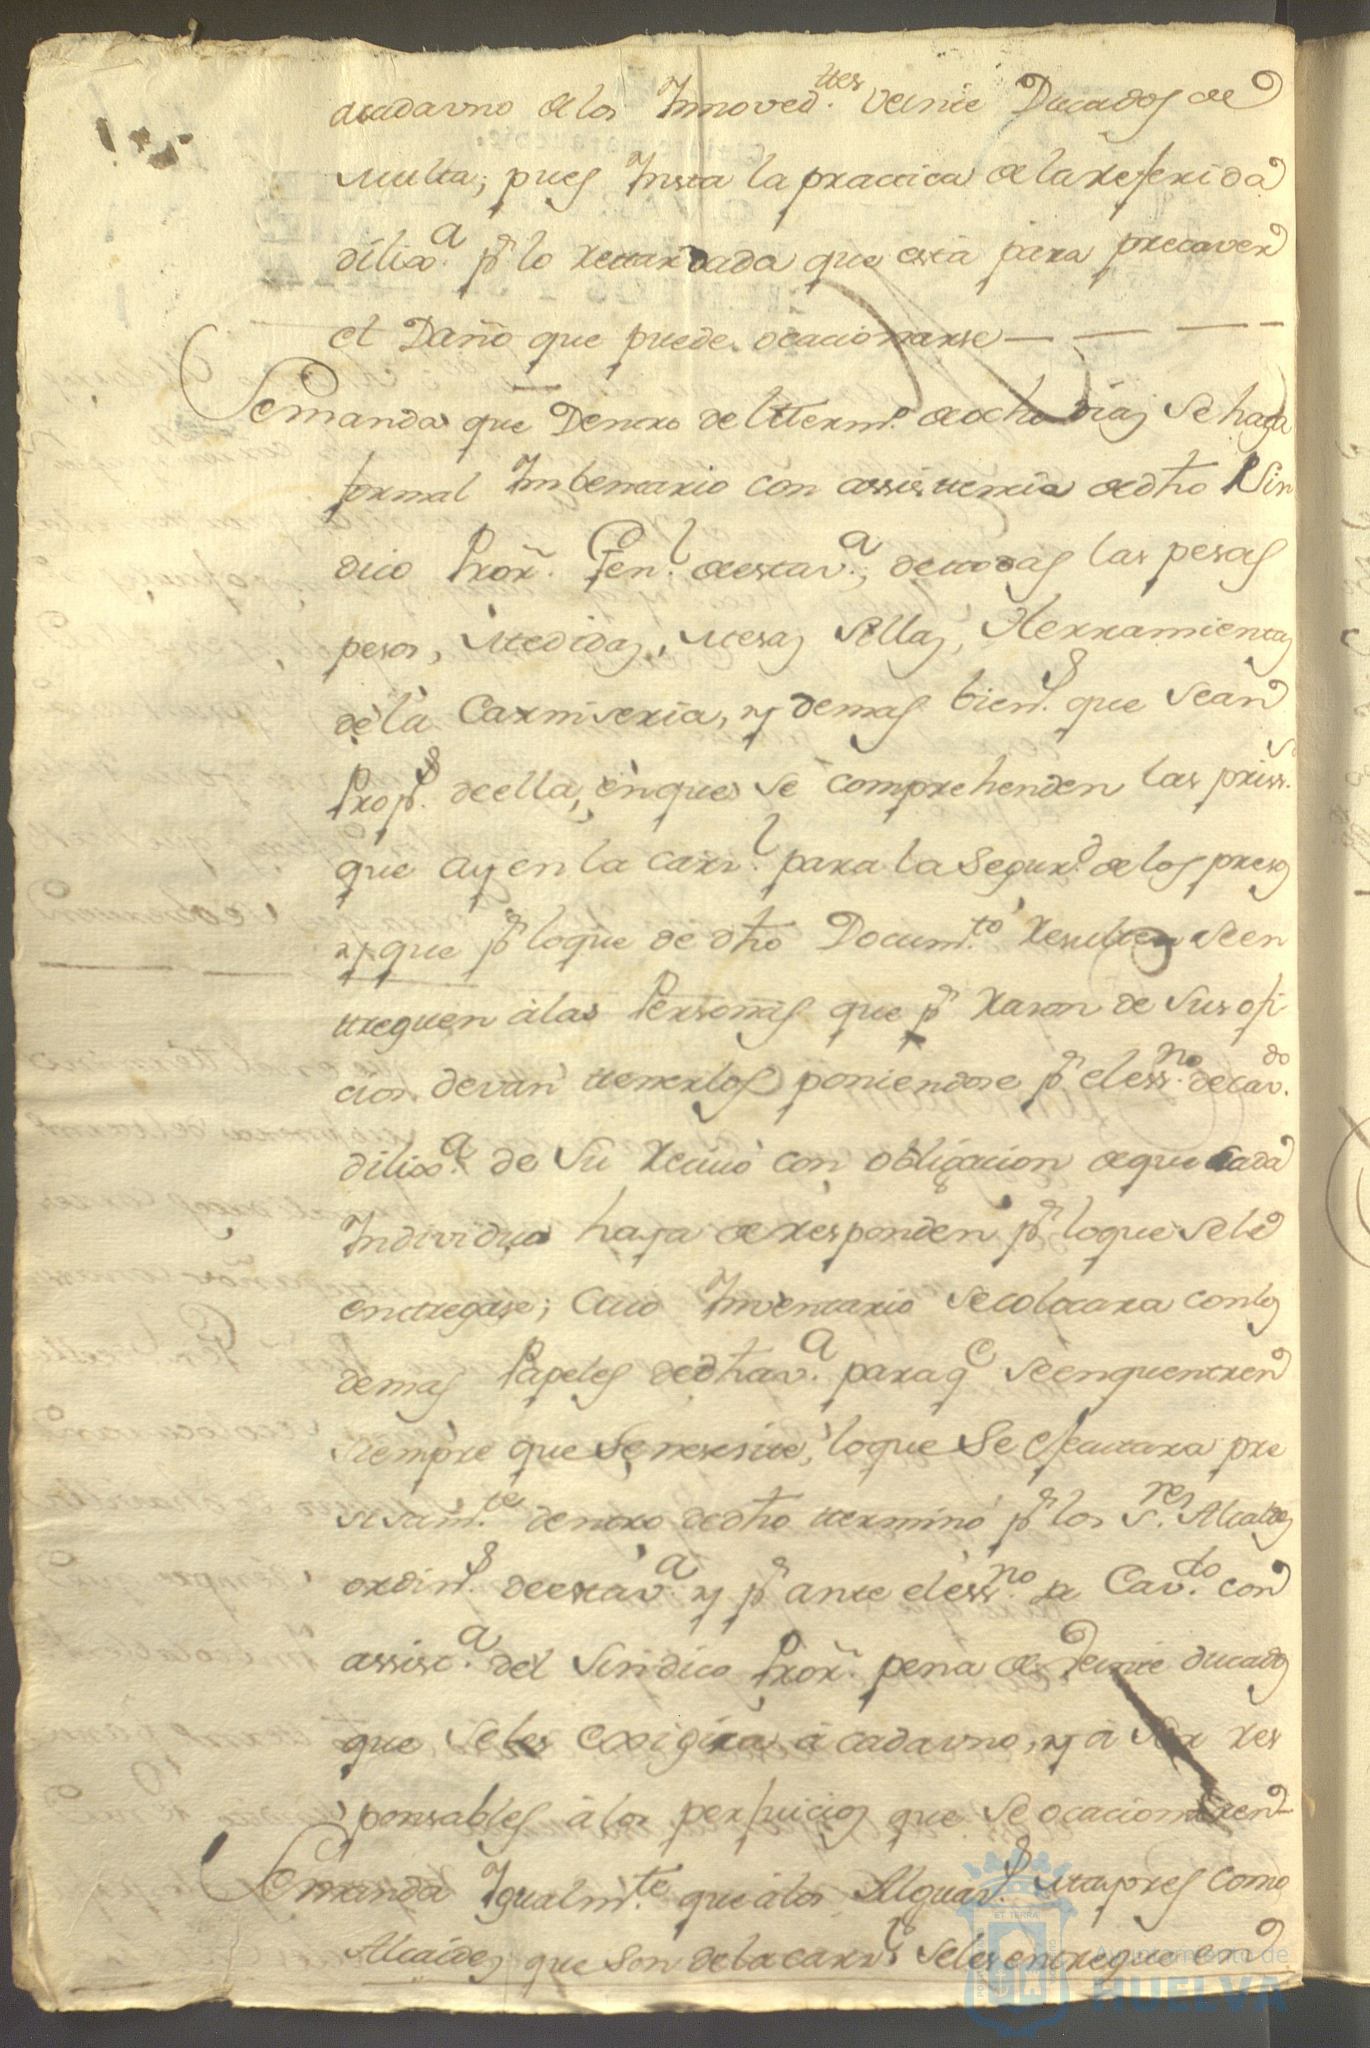 acadauno de los Innoved.ttes veinte Ducados de
Multa; pues Insta la practica de la referida
dilix.a pr lo retardada que està para precaver
el Daño que puede ocacionarse — — — —
Semanda que Dentro del ttermo. deocho dias se haga
formal Imbentario con assisttencia dedho Sin
dico Pror. Gen.l deestav.a, dettodas las pesas
pesos, Medidas, Mesas Sillas, Herramientas
dela Carniseria, y demas bien.s que sean
Prop.s deella, enque se comprehenden las priss.s
que ay en la carz.l para la segur.d de los presos
y que pr loque de dho Docum.to Resultten seen
ttreguen àlas Personas que pr Razon de sus ofi
cios devan ttenerlos poniendose pr el ess.no decav.do
dilix.a de su Reciuo con obligacion deque cada
Individuo haya de responder pr loque sele
entregase; Cuio Inventario secolocara conlos
demas Papeles dedhav.a paraq.e seenquentren
siempre que se nesesite, loque se efecutara pre
sisam.te dentro dedho ttermino pr los S.res Alcaldes
ordin.s deestav.a y pr ante eless.no de Cav.do con
assist.a del Sindico Pror. pena de Veinte ducados
que seles exigira à cadauno, y à ser res
ponsables àlos perjuicios que se ocacionaren
Semanda Igualm.te que àlos Alguas.s Mayores como
Alcaides que son dela carz.l seles entregue en
Ayuntamiento de
HUELVA